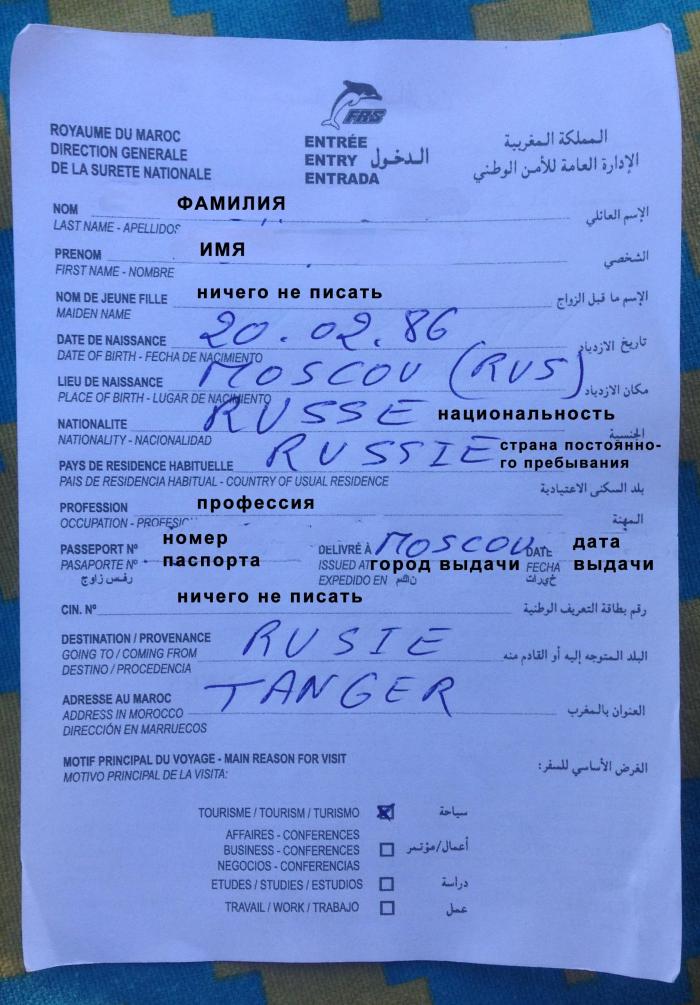 FRS
ROYAUME DU MAROC
DIRECTION GENERALE
DE LA SURETE NATIONALE
ENTRÉE
ENTRY الدخول
ENTRADA
المملكة المغربية
الإدارة العامة للأمن الوطني
NOM ФАМИЛИЯ الإسم العائلي
LAST NAME - APELLIDOS
PRENOM ИМЯ الشخصي
FIRST NAME - NOMBRE
NOM DE JEUNE FILLE ничего не писать الإسم ما قبل الزواج
MAIDEN NAME
DATE DE NAISSANCE 20.02.86 تاريخ الازدياد
DATE OF BIRTH - FECHA DE NACIMIENTO
LIEU DE NAISSANCE MOSCOU (RUS) مكان الازدياد
PLACE OF BIRTH - LUGAR DE NACIMIENTO
NATIONALITE RUSSE национальность الجنسية
NATIONALITY - NACIONALIDAD
PAYS DE RESIDENCE HABITUELLE RUSSIE страна постоянно-
го пребывания
PAIS DE RESIDENCIA HABITUAL - COUNTRY OF USUAL RESIDENCE بلد السكنى الاعتيادية
PROFESSION профессия المهنة
OCCUPATION - PROFESION
PASSEPORT Nº номер DELIVRÉ À MOSCOU DATE дата
PASAPORTE Nº паспорта ISSUED AT город выдачи FECHA выдачи
EXPEDIDO EN
CIN. Nº ничего не писать رقم بطاقة التعريف الوطنية
DESTINATION / PROVENANCE RUSIE
GOING TO / COMING FROM البلد المتوجه إليه أو القادم منه
DESTINO / PROCEDENCIA
ADRESSE AU MAROC TANGER
ADDRESS IN MOROCCO العنوان بالمغرب
DIRECCIÓN EN MARRUECOS
MOTIF PRINCIPAL DU VOYAGE - MAIN REASON FOR VISIT الغرض الأساسي للسفر:
MOTIVO PRINCIPAL DE LA VISITA:
TOURISME / TOURISM / TURISMO سياحة
AFFAIRES - CONFERENCES
BUSINESS - CONFERENCES أعمال/مؤتمر
NEGOCIOS - CONFERENCIAS
ETUDES / STUDIES / ESTUDIOS دراسة
TRAVAIL / WORK / TRABAJO عمل